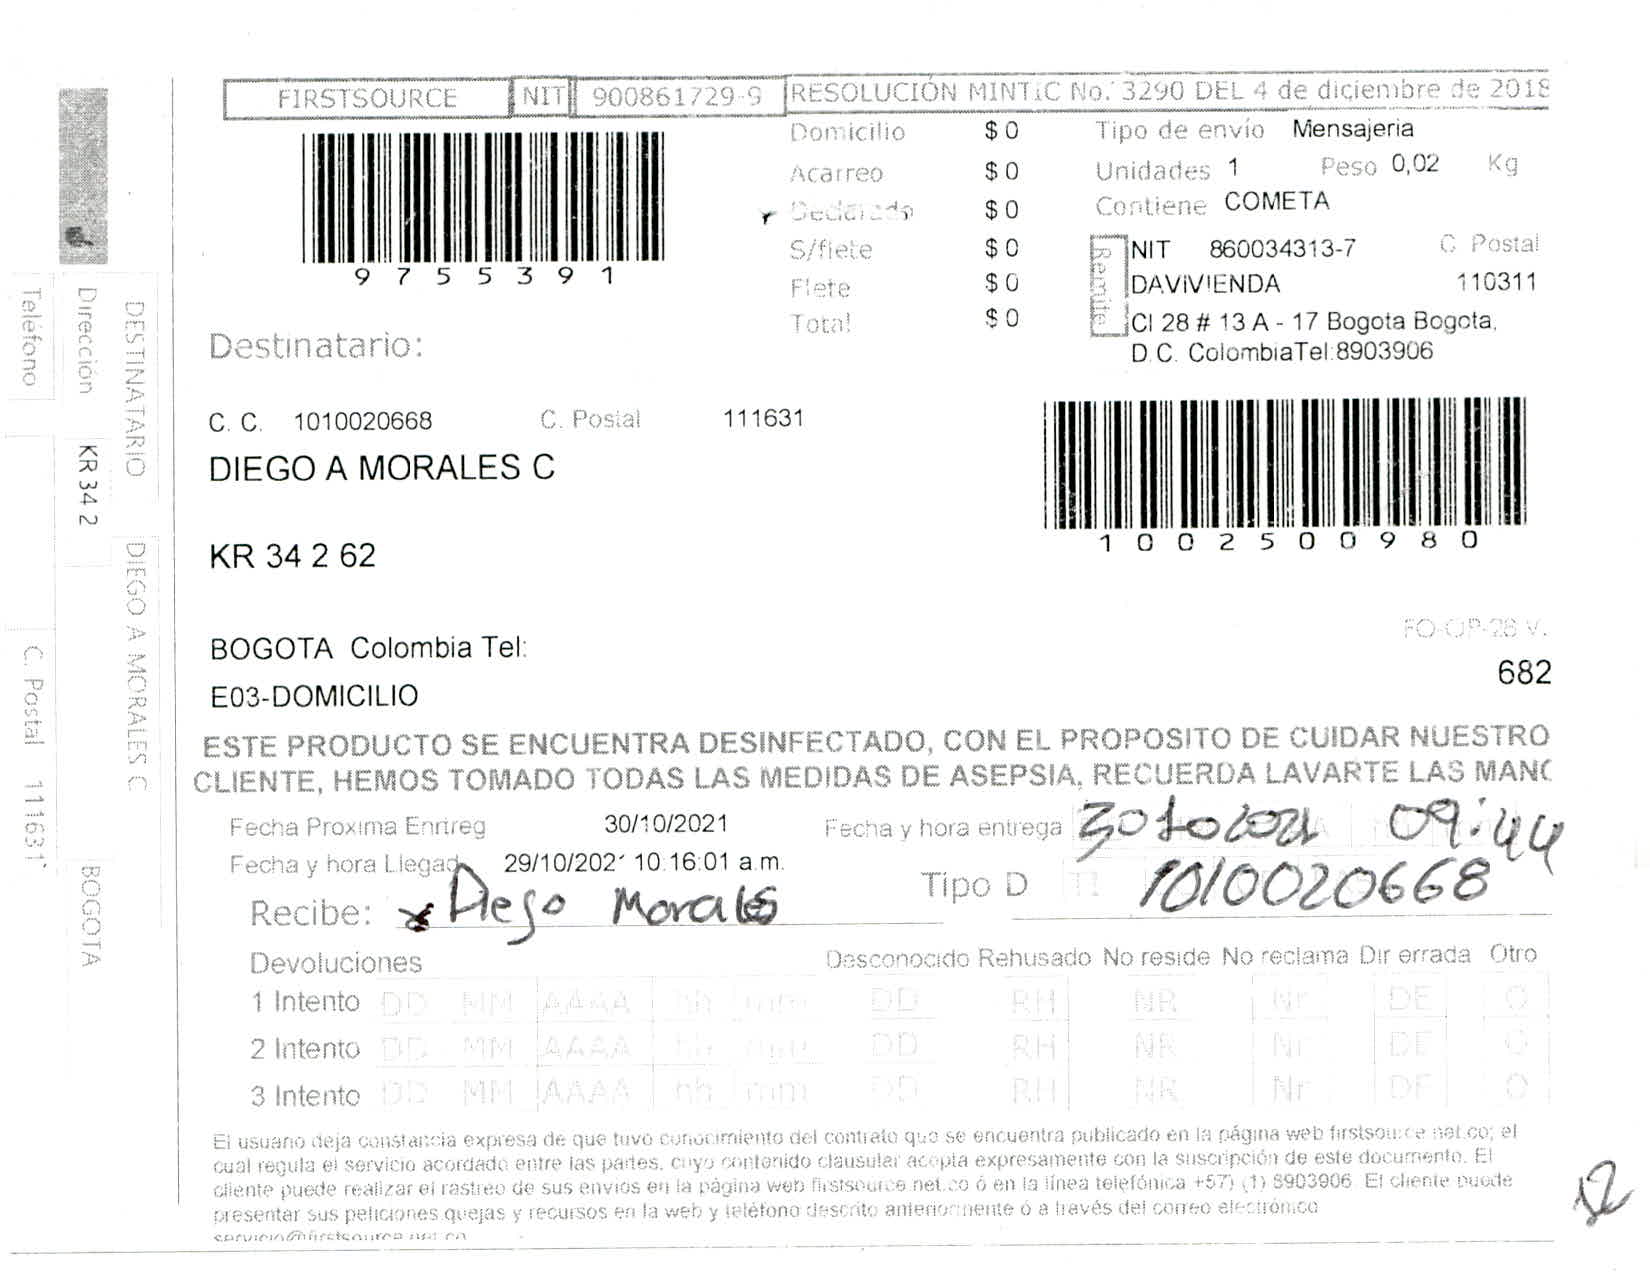 FIRSTSOURCE NIT 900861729-9 RESOLUCIÓN MINTIC No. 3290 DEL 4 de diciembre de 2018
9755391
Domicilio $ 0
Acarreo $ 0
Declarado $ 0
S/flete $ 0
Flete $ 0
Total $ 0
Tipo de envío Mensajeria
Unidades 1 Peso 0,02 Kg
Contiene COMETA
Remite
NIT 860034313-7 C Postal
DAVIVIENDA 110311
Cl 28 # 13 A - 17 Bogota Bogota,
D.C. ColombiaTel:8903906
Destinatario:
C. C. 1010020668 C. Postal 111631
DIEGO A MORALES C
1002500980
KR 34 2 62
BOGOTA Colombia Tel:
E03-DOMICILIO
FO-OP-26 V.
682
ESTE PRODUCTO SE ENCUENTRA DESINFECTADO, CON EL PROPOSITO DE CUIDAR NUESTRO
CLIENTE, HEMOS TOMADO TODAS LAS MEDIDAS DE ASEPSIA, RECUERDA LAVARTE LAS MANO
Fecha Proxima Enrtreg 30/10/2021 Fecha y hora entrega 30 10 2021 09:44
Fecha y hora Llegad 29/10/2021 10:16:01 a.m.
Tipo D TI 1010020668
Recibe: x Diego Morales
Devoluciones Desconocido Rehusado No reside No reclama Dir errada Otro
1 Intento DD MM AAAA hh mm DD RH NR Nr DE O
2 Intento DD MM AAAA hh mm DD RH NR Nr DE O
3 Intento DD MM AAAA hh mm DD RH NR Nr DE O
El usuario deja constancia expresa de que tuvo conocimiento del contrato que se encuentra publicado en la página web firstsource.net.co; el
cual regula el servicio acordado entre las partes, cuyo contenido clausular acepta expresamente con la suscripción de este documento. El
cliente puede realizar el rastreo de sus envios en la página web firstsource.net.co ó en la línea telefónica +57) (1) 8903906 El cliente puede
presentar sus peliciones,quejas y recursos en la web y teléfono descrito anteriormente ó a través del correo electrónico
servicio@firstsource.net.co
DESTINATARIO DIEGO A MORALES C
Dirección KR 34 2 BOGOTA
Teléfono C. Postal 111631